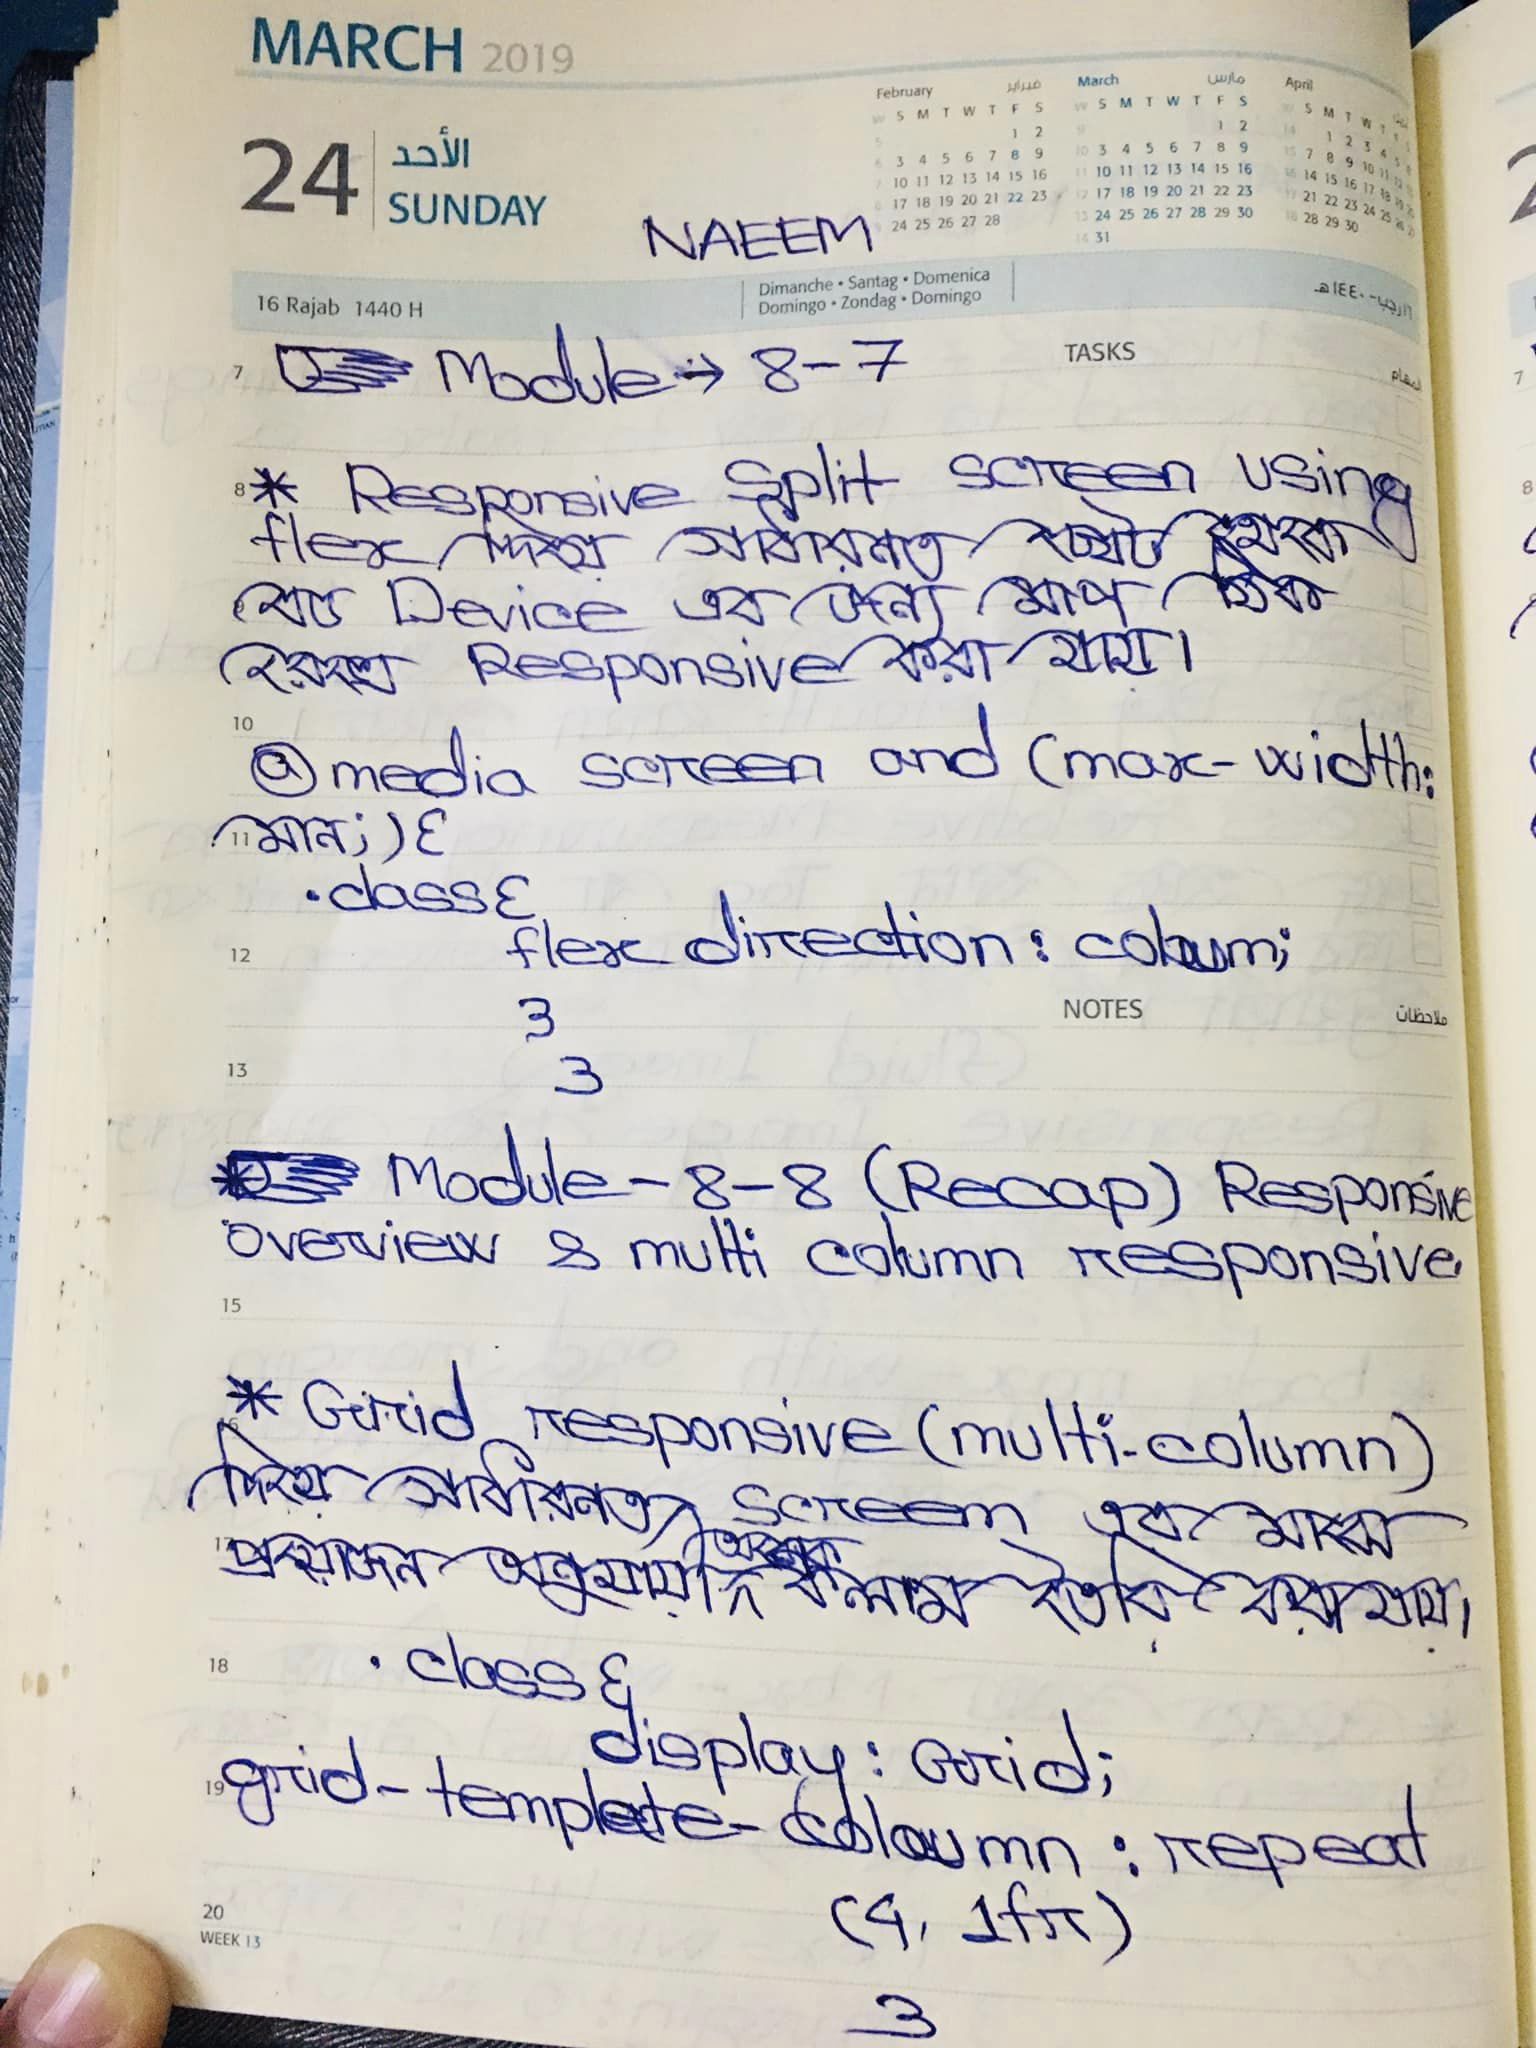 MARCH 2019
24
الأحد
SUNDAY
February فبراير
W S M T W T F S
5 1 2
6 3 4 5 6 7 8 9
7 10 11 12 13 14 15 16
8 17 18 19 20 21 22 23
9 24 25 26 27 28
March مارس
W S M T W T F S
9 1 2
10 3 4 5 6 7 8 9
11 10 11 12 13 14 15 16
12 17 18 19 20 21 22 23
13 24 25 26 27 28 29 30
14 31
April
W S M T W T
14 1 2 3 4 5 6
15 7 8 9 10 11
16 14 15 16 17 18 19 20
17 21 22 23 24 25 26 27
18 28 29 30
NAEEM
16 Rajab 1440 H
Dimanche • Santag • Domenica
Domingo • Zondag • Domingo
١٦ رجب - ١٤٤٠ هـ
7 Module → 8-7
TASKS المهام
8 * Responsive Split screen using
flex দিয়ে সাধারনত ছোট থেকে
বড় Device এর জন্য মাপ ঠিক
রেখে Responsive করা যায়।
10
@media screen and (max-width:
11 মান;){
.class{
12 flex direction: colum;
}
NOTES ملاحظات
13 }
* Module-8-8 (Recap) Responsive
overview & multi column responsive
15
* Grid responsive (multi-column)
16
দিয়ে সাধারনত screem এর মাঝে
17 প্রয়োজন অনুযায়ী অনেক কলাম তৈরি করা যায়।
18 .class{
display: Grid;
19 grid-template-coloumn: repeat
(4, 1fr)
20
WEEK 13
}